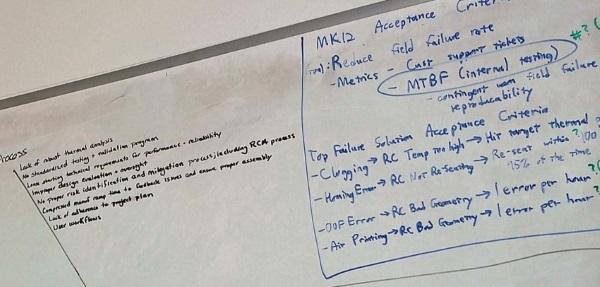 Process
Lack of robust thermal analysis
No standardized testing + validation program
Lean starting technical requirements for performance + reliability
Improper design evaluation + oversight
No proper risk identification and mitigation process, including RCA process
Compressed manuf ramp time to feedback issues and ensure proper assembly
Lack of adherence to project plan
User workflows
MK12 Acceptance Criter
Goal: Reduce field failure rate
- Metrics - Cust support tickets
- MTBF (internal testing)
#?
- contingent upon field failure
reproducability
Top Failure Solution Acceptance Criteria
- Clogging → RC Temp too high → Hit target thermal
- Homing Error → RC Not Re-seating → Re-seat within ?100
95% of the time
- OOF Error → RC Bad Geometry → 1 error per hour ?
- Air Printing → RC Bad Geometry → 1 error per hour ?